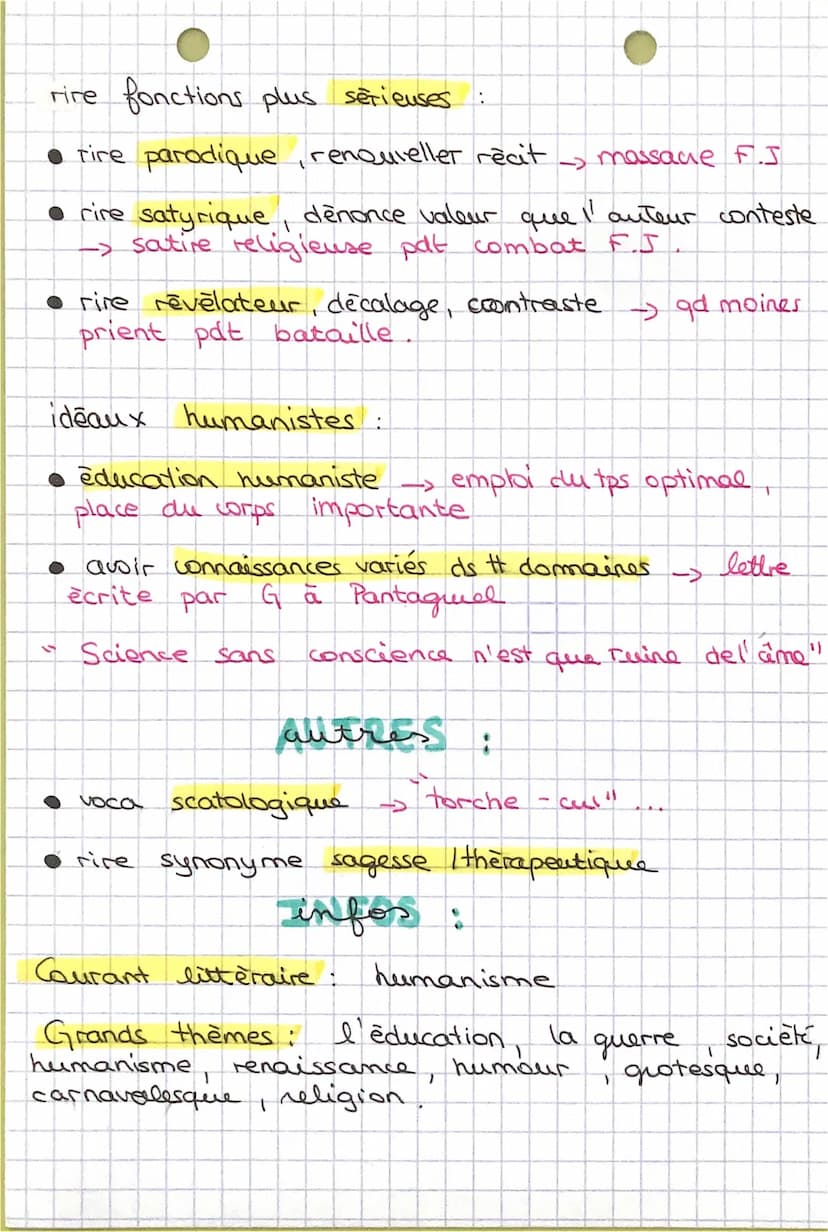 rire fonctions plus sérieuses :
• rire parodique, renouveller récit → massacre F.J
• rire satyrique, dénonce valeur que l'auteur conteste
→ satire religieuse pdt combat F.J.
• rire révélateur, décalage, contraste → qd moines
prient pdt bataille.
idéaux humanistes :
• éducation humaniste → emploi du tps optimal,
place du corps importante
• avoir connaissances variés ds ≠ domaines → lettre
écrite par G à Pantagruel
"Science sans conscience n'est que ruine de l'âme"
AUTRES :
autres
• voca scatologique → "torche-cul"...
• rire synonyme sagesse / thérapeutique
INFOS :
infos
Courant littéraire : humanisme
Grands thèmes : l'éducation, la guerre, société,
humanisme, renaissance, humour, grotesque,
carnavalesque, religion.